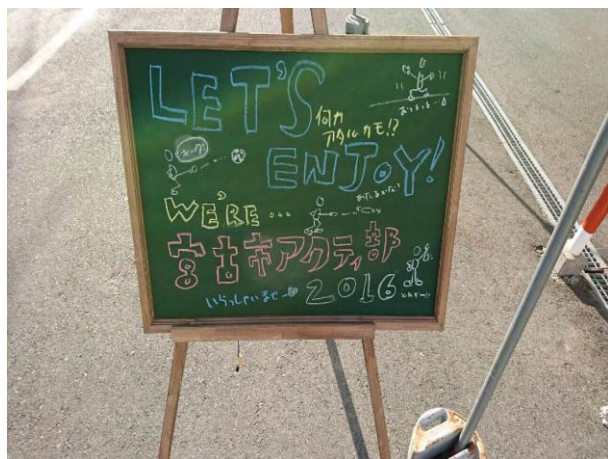 LET'S
何か
アタルカモ!?
ENJOY!
WE'RE...
宮古市アクティ部
いらっしゃいませー
2016